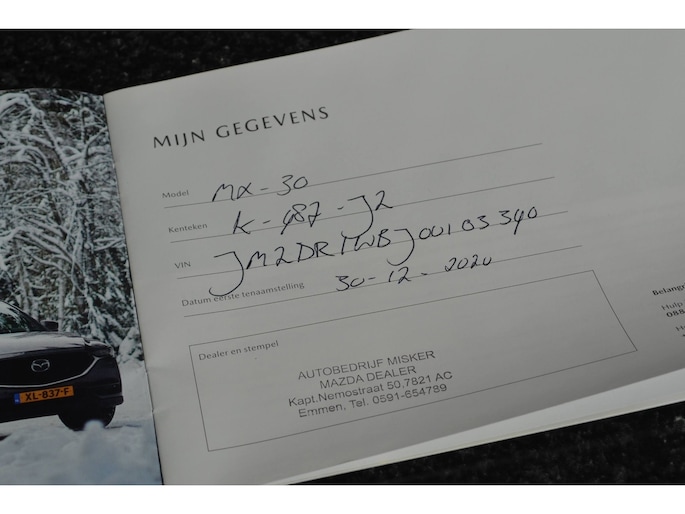 MIJN GEGEVENS
Model MX-30
Kenteken K-487-J2
VIN JM2DR1WBJ00103340
Datum eerste tenaamstelling 30-12-2020
Dealer en stempel
AUTOBEDRIJF MISKER
MAZDA DEALER
Kapt.Nemostraat 50,7821 AC
Emmen. Tel. 0591-654789
Hulp
088
XL-837-F